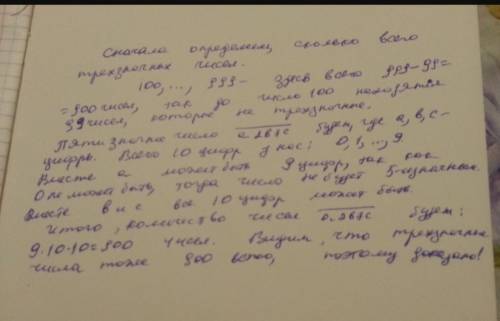 Сначала определим, сколько всего
трехзначных чисел.
100, ..., 999 - Здесь всего 999-99=
=900 чисел, так до число 100 находятся
99 чисел, которые не трехзначные.
Пятизначное число a2b7c будем, где a, b, c -
цифры. Всего 10 цифр у нас: 0, 1, ..., 9.
Вместо a может быть 9 цифр, так как
0 не может быть, тогда число не будет 5-значным.
Вместо b и c все 10 цифр может быть.
Итого, количество чисел a2b7c будем:
9·10·10=900 чисел. Видим, что трехзначных
числа тоже 900 всего, поэтому доказано!